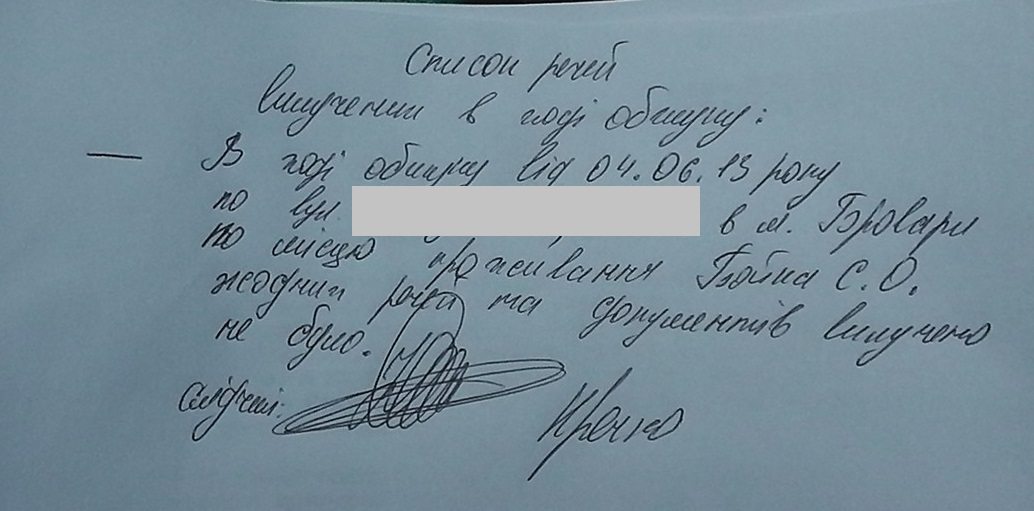 Список речей
вилучених в ході обшуку:
— В ході обшуку від 04.06.13 року
по вул. в м. Бровари
по місцю проживання Бойка С.О.
жодних речей та документів вилучено
не було.
слідчий: